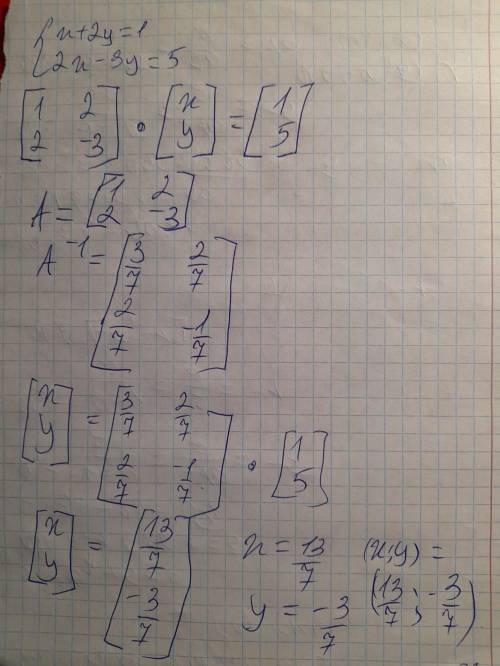 { x+2y=1
{ 2x-3y=5
[1 2; 2 -3] · [x; y] = [1; 5]
A = [1 2; 2 -3]
A^-1 = [3/7 2/7; 2/7 -1/7]
[x; y] = [3/7 2/7; 2/7 -1/7] · [1; 5]
[x; y] = [13/7; -3/7]
x = 13/7
y = -3/7
(x;y) =
(13/7; -3/7)